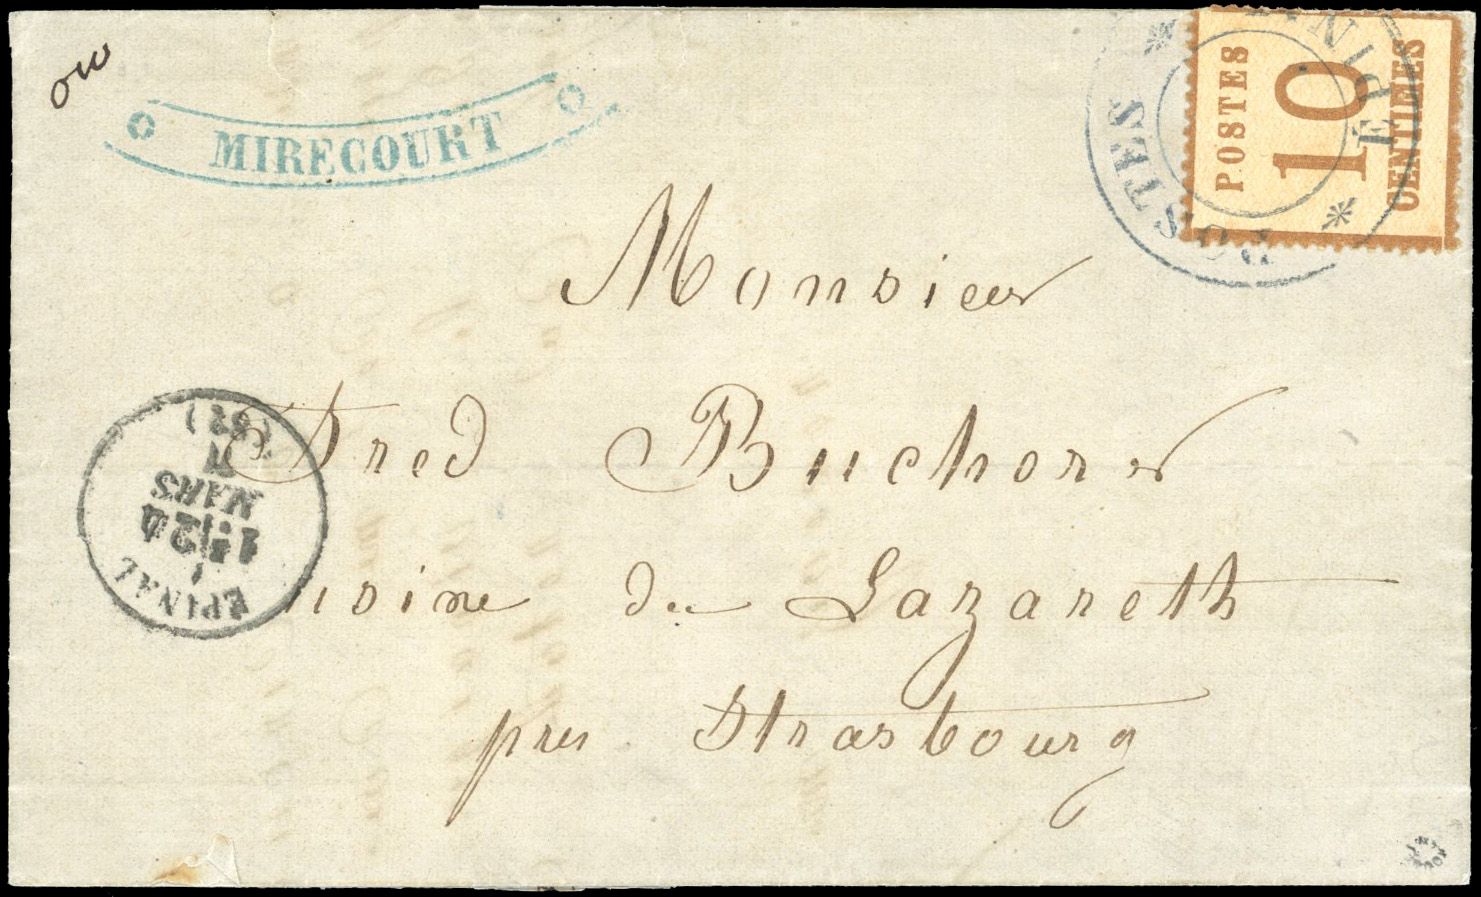 MIRECOURT
POSTES
10
CENTIMES
POSTES
Monsieur
Fred Bucherer
usine du Lazareth
près Strasbourg
EPINAL
MARS